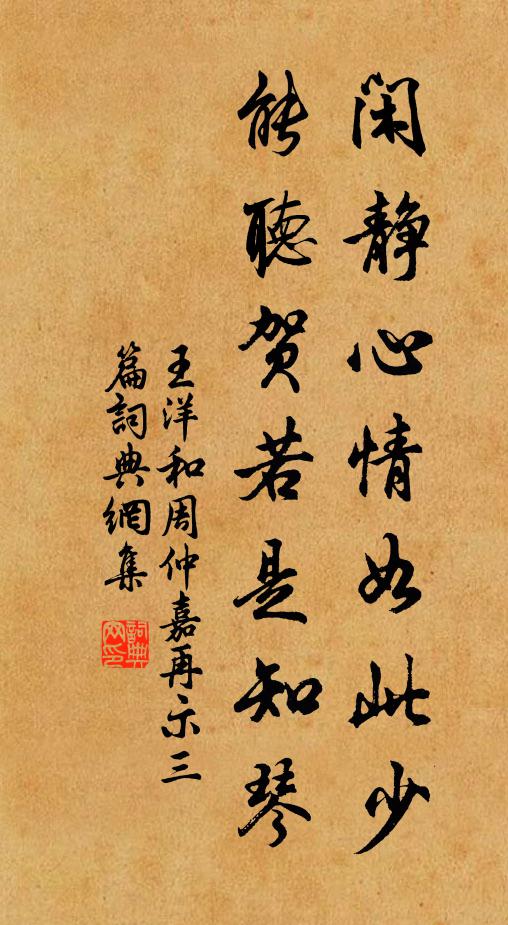 闲静心情如此少
能聽贺若是知琴
王洋和周仲嘉再示三
篇詞典網集
詞典
网印